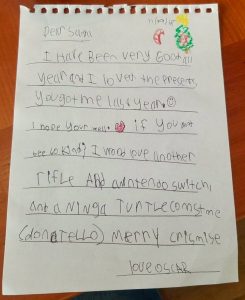 Dear Santa
I Have Been very Good all
year and I loved the Presents
You got me last year.
I hope your well if you
be so kind I would love another
rifle And a nintendo switch,
and a Ninja TURTLE cOnstme
(donatello) merry crismise
love oscar